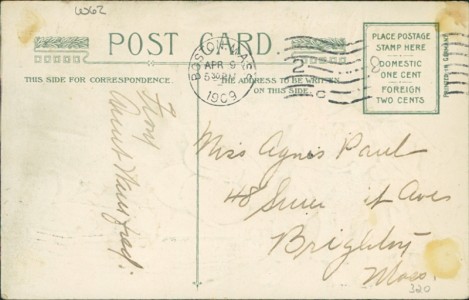 W62
POST CARD.
BOSTON, MASS.
APR 9
5 30 PM
1909
2
C
PLACE POSTAGE
STAMP HERE
DOMESTIC
ONE CENT
FOREIGN
TWO CENTS
PRINTED IN GERMANY
THIS SIDE FOR CORRESPONDENCE
THE ADDRESS TO BE WRITTEN
ON THIS SIDE
From
Aunt
Miss Agnes Paul
48 st Ave
Brighton
Mass.
320